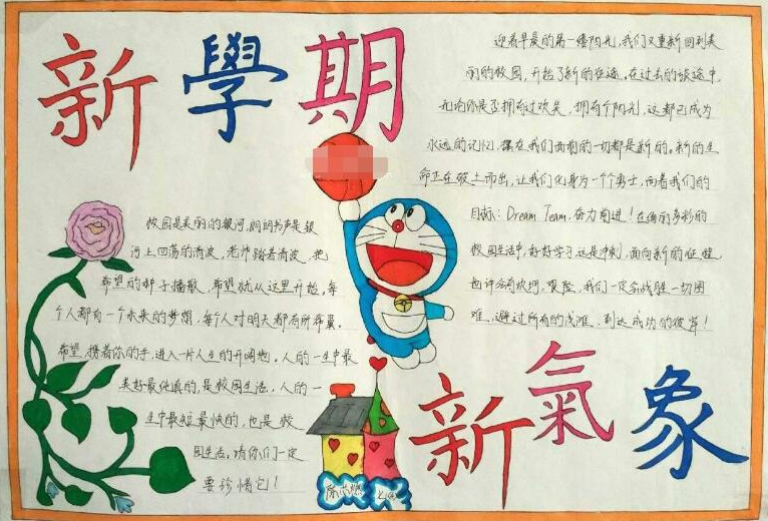 新學期
迎着早晨的第一缕阳光,我们又重新回到美
丽的校园,开启了新的征途。在过去的旅途中,
无论你是否拥有过欢笑,拥有个阳光,这都已成为
永远的记忆,摆在我们面前的一切都是新的。新的生
命正在破土而出,让我们化身为一个个勇士,向着我们的
目标:Dream Team,奋力前进!在绚丽多彩的
校园生活中,好好学习,这是冲刺,面向新的征程
也许会有坎坷,艰险,我们一定会战胜一切困
难,避过所有的浅滩,到达成功的彼岸!
校园是美丽的银河,朗朗书声是银
河上回荡的清波,老师踏着清波,把
希望的种子播散,希望就从这里开始,每
个人都有一个未来的梦想,每个人对明天都有所希冀。
希望,携着你的手,进入一片人生的开阔地。人的一生中最
美好最纯真的,是校园生活。人的一
生中最短最快的,也是校
园生活。请你们一定
要珍惜它!
新氣象